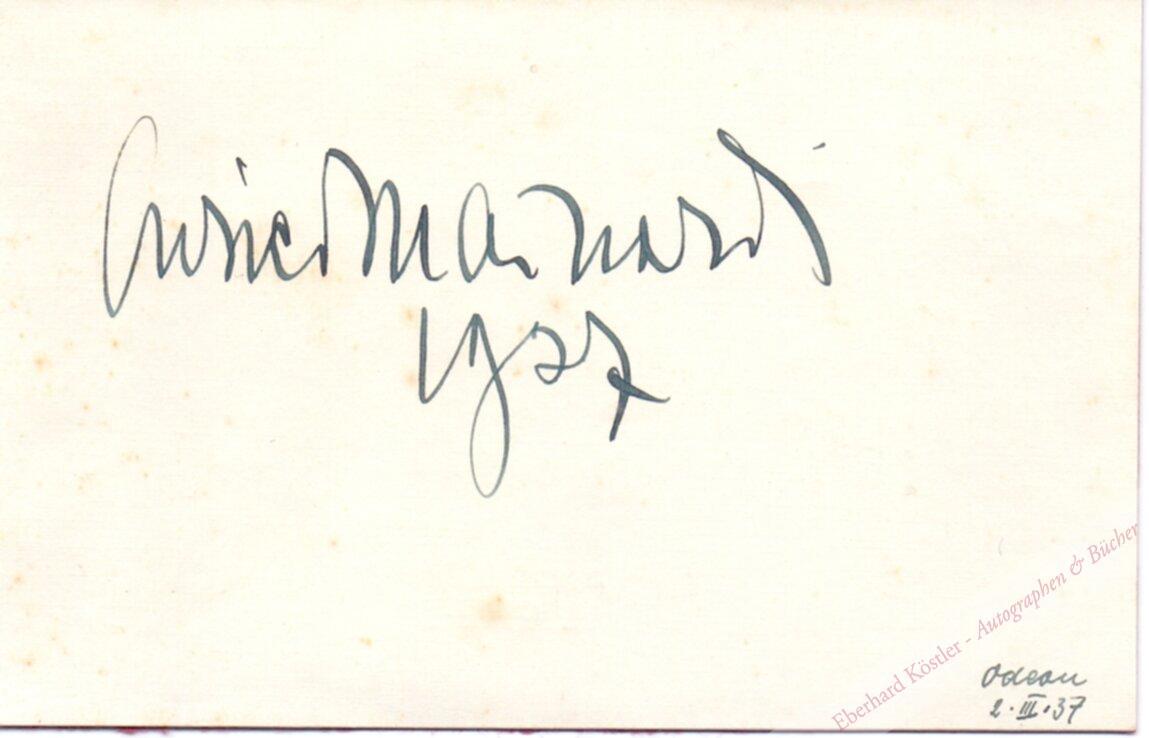 Enrico Mainardi
1937
Eberhard Köstler - Autographen & Bücher
Odeon
2.III.37